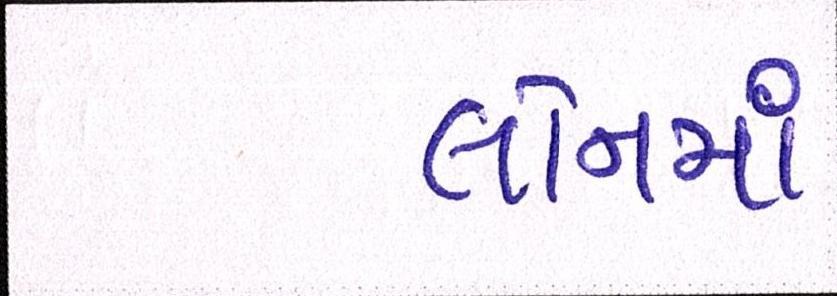 લોનમાં